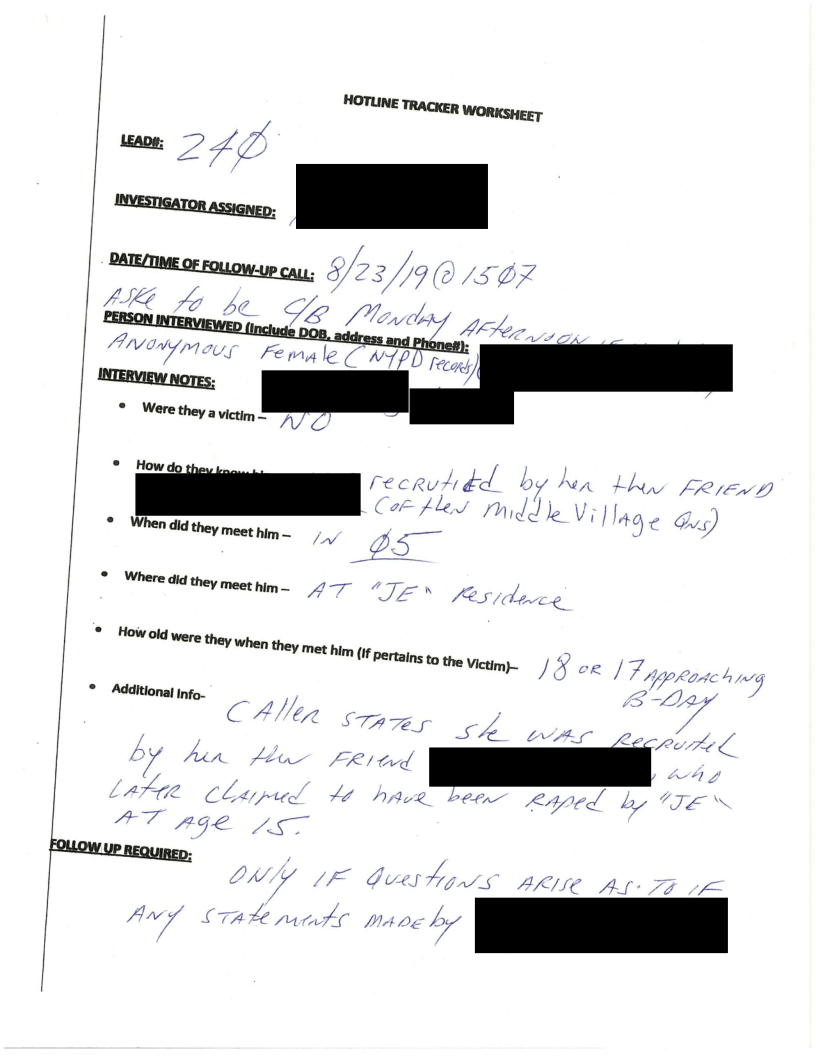 HOTLINE TRACKER WORKSHEET
LEAD#: 24Ø
INVESTIGATOR ASSIGNED:
DATE/TIME OF FOLLOW-UP CALL: 8/23/19 @ 15Ø7
ASKe to be C/B MONDAY AFTERNOON IF
PERSON INTERVIEWED (Include DOB, address and Phone#):
ANONYMOUS FemAle (NYPD records)
INTERVIEW NOTES:
• Were they a victim – NO
• How do they
recrutied by her then FRIEND
(of then Middle Village Qns)
• When did they meet him – IN Ø5
• Where did they meet him – AT "JE" Residence
• How old were they when they met him (If pertains to the Victim)– 18 OR 17 APPROAChing
B-DAY
• Additional Info-
CAller STATes she WAS RecRuited
by her then FRIend , who
LATER CLAIMed to hAve been RAPed by "JE"
AT Age 15.
FOLLOW UP REQUIRED:
ONly IF QuestIONS ARISE AS TO IF
ANY STATements MADE by